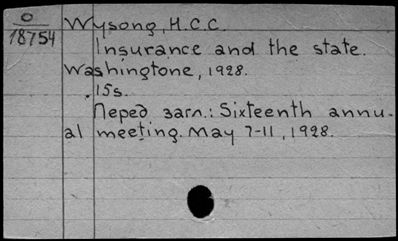 O
18754
Wysong, H.C.C.
Insurance and the state.
Washingtone, 1928.
15s.
Перед загл.: Sixteenth annu-
al meeting. May 7-11, 1928.